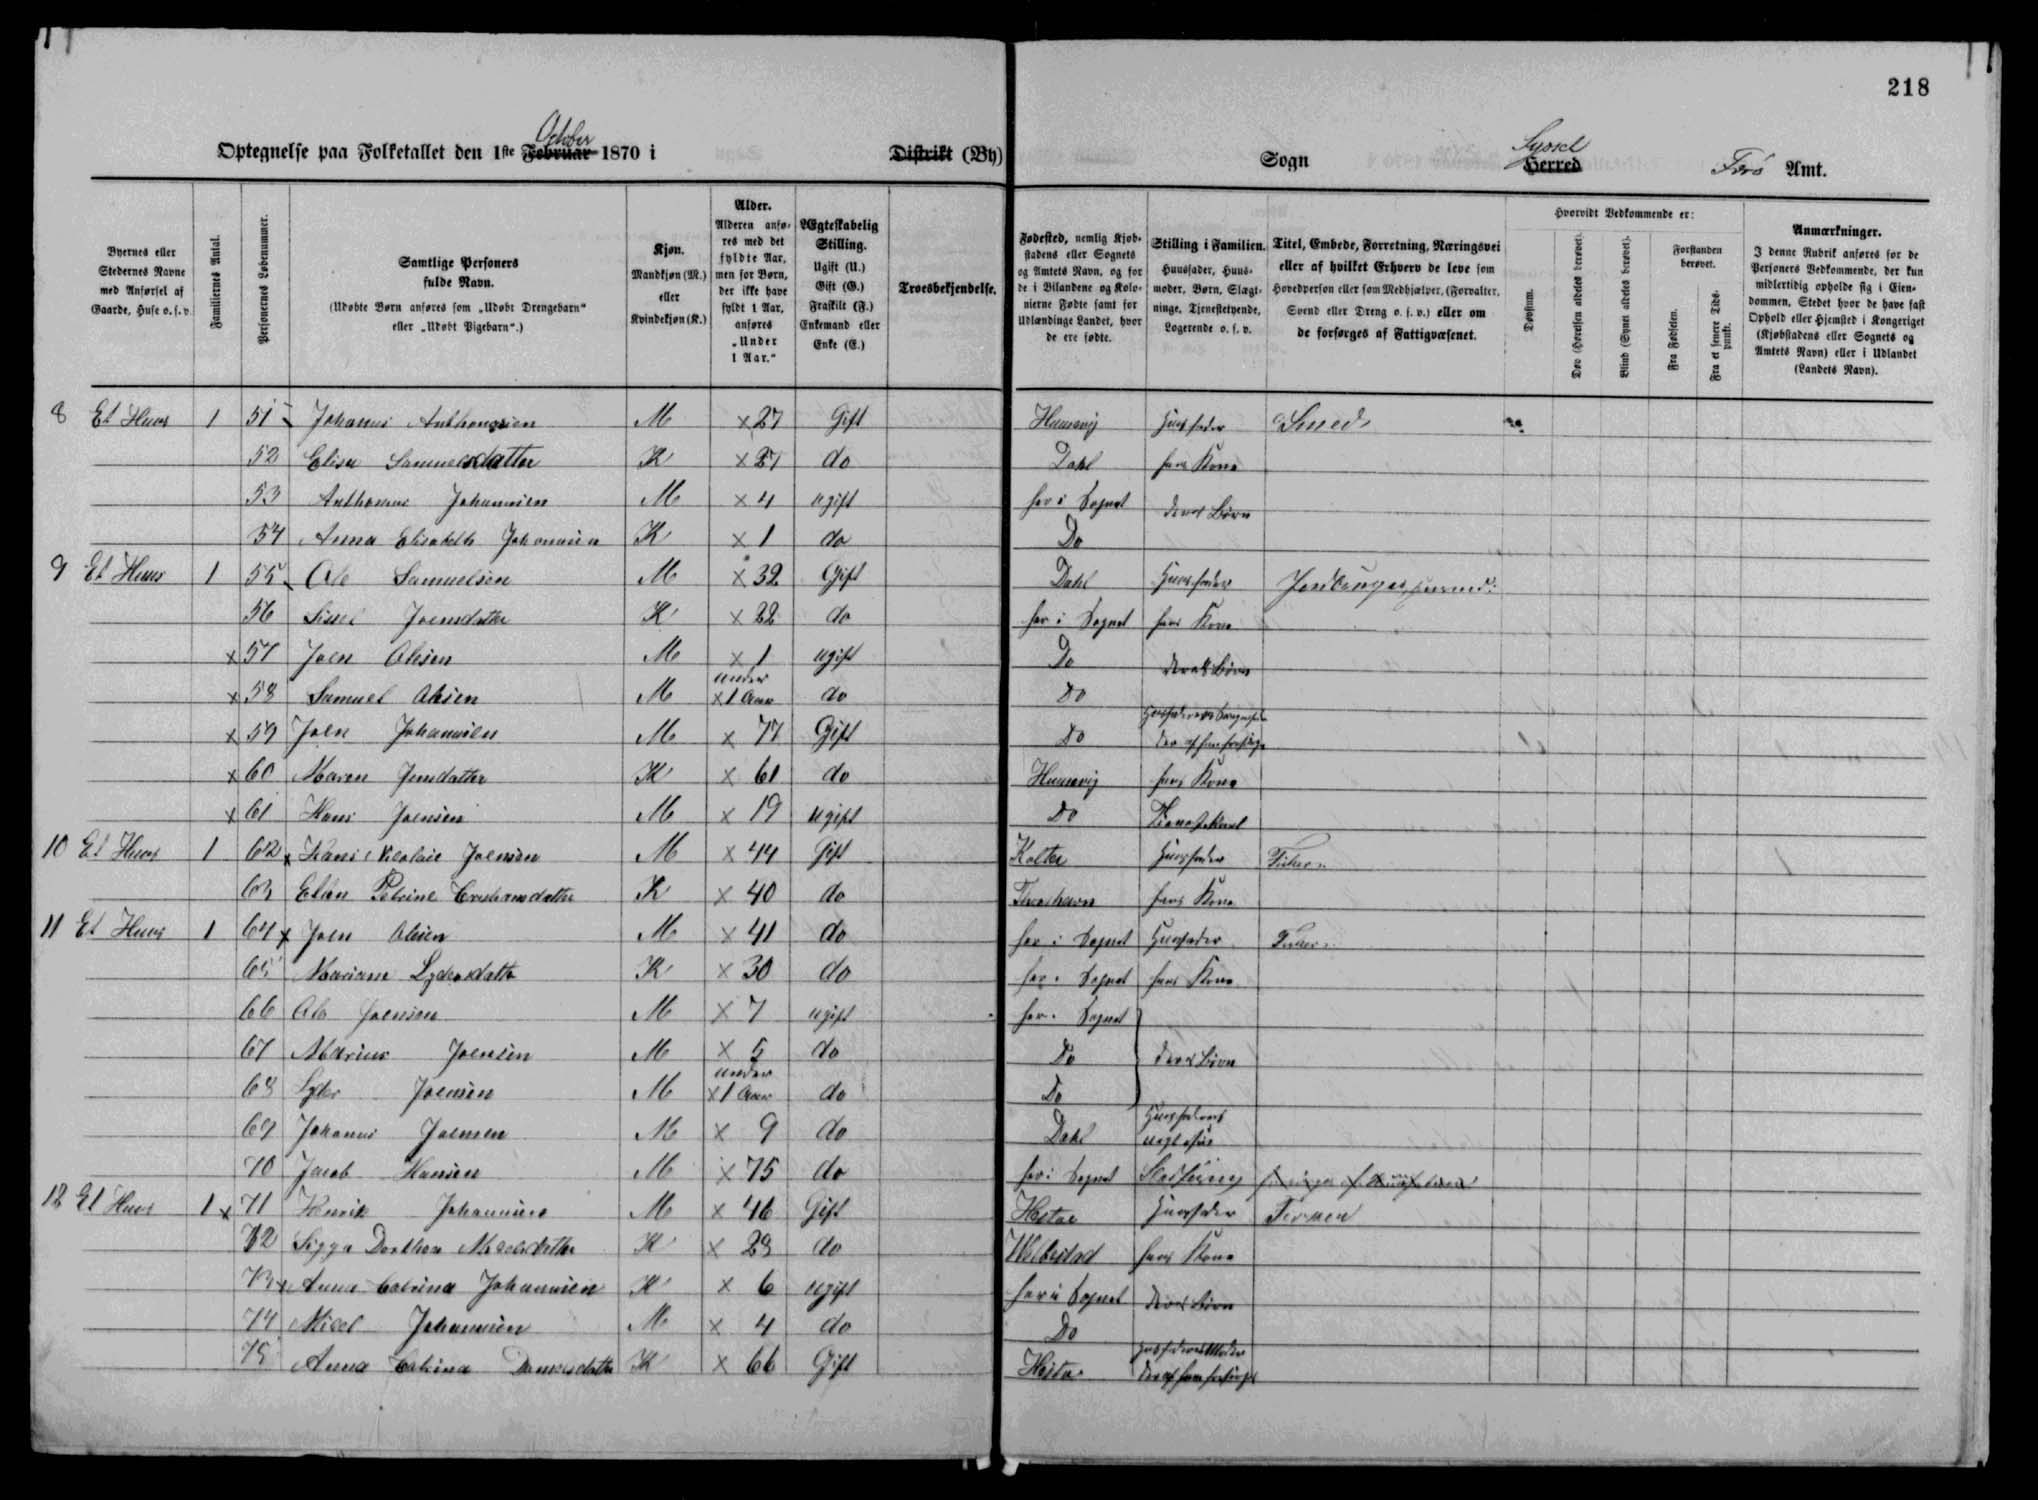 218
October
Optegnelse paa Folketallet den 1ste Februar 1870 i Distrikt (By)
Sogn
Syssel
Herred
Færø Amt.
Byernes eller Stedernes Navne med Anførsel af Gaarde, Huse o. s. v.
Familiernes Antal.
Personernes Løbenummer.
Samtlige Personers fulde Navn.
(Udøbte Børn anføres som „Udøbt Drengebarn" eller „Udøbt Pigebarn".)
Kjøn.
Mandkjøn (M.) eller Kvindekjøn (K.)
Alder.
Alderen anføres med det fyldte Aar, men for Børn, der ikke have fyldt 1 Aar, anføres „Under 1 Aar."
Ægteskabelig Stilling.
Ugift (U.) Gift (G.) Fraskilt (F.) Enkemand eller Enke (E.)
Troesbekjendelse.
Fødested, nemlig Kjøbstadens eller Sognets og Amtets Navn, og for de i Bilandene og Kolonierne Fødte samt for Udlændinge Landet, hvor de ere fødte.
Stilling i Familien.
Huusfader, Huusmoder, Børn, Slægtninge, Tjenestetyende, Logerende o. s. v.
Titel, Embede, Forretning, Næringsvei eller af hvilket Erhverv de leve som Hovedperson eller som Medhjælper, (Forvalter, Svend eller Dreng o. s. v.) eller om de forsørges af Fattigvæsenet.
Hvorvidt Vedkommende er:
Døvstum.
Døv (Hørelsen aldeles berøvet).
Blind (Synet aldeles berøvet).
Forstanden berøvet.
Fra Fødselen.
Fra et senere Tidspunkt.
Anmærkninger.
I denne Rubrik anføres for de Personers Vedkommende, der kun midlertidig opholde sig i Eiendommen, Stedet hvor de have fast Ophold eller Hjemsted i Kongeriget (Kjøbstadens eller Sognets og Amtets Navn) eller i Udlandet (Landets Navn).
8 Et Huus 1 51 Johannes Anthoniusen M × 27 Gift Huusevig Huusfader Smed
52 Elisa Samuelsdatter K × 27 do Dahl hans Kone
53 Anthonius Johannesen M × 4 ugift her i Sognet deres Børn
54 Anna Elisabeth Johannesen K × 1 do Do
9 Et Huus 1 55 Ole Samuelsen M × 32 Gift Dahl Huusfader
56 Sissel Joensdatter K × 22 do her i Sognet hans Kone
× 57 Joen Olesen M × 1 ugift Do deres Børn
× 58 Samuel Olesen M × under 1 Aar do Do
× 59 Joen Johannesen M × 77 Gift Do
× 60 Maren Jensdatter K × 61 do Huusevig hans Kone
× 61 Hans Joensen M × 19 ugift Do Tjenestekarl
10 Et Huus 1 62 × Joensen M × 44 Gift Kolter Huusfader Fisker
63 Elsen Petrine K × 40 do Thorshavn hans Kone
11 Et Huus 1 64 × Joen Olesen M × 41 do her i Sognet Huusfader Fisker
65 Mariane Lydersdatter K × 30 do her i Sognet hans Kone
66 Ole Joensen M × 7 ugift her i Sognet
67 Marius Joensen M × 5 do Do deres Børn
68 Lyder Joensen M × under 1 Aar do Do
69 Johannes Joensen M × 9 do Dahl Huusfaderens uægte Søn
70 Jacob Hansen M × 75 do her i Sognet
12 Et Huus 1 × 71 Henrik Johannesen M × 46 Gift Hestøe Huusfader
72 Sigga Dorthea K × 28 do Welbestad hans Kone
73 × Anna Catrina Johannesen K × 6 ugift her i Sognet deres Børn
74 Micel Johannesen M × 4 do Do
75 Anna Catrina K × 66 Gift Hestøe Huusfaderens Moder